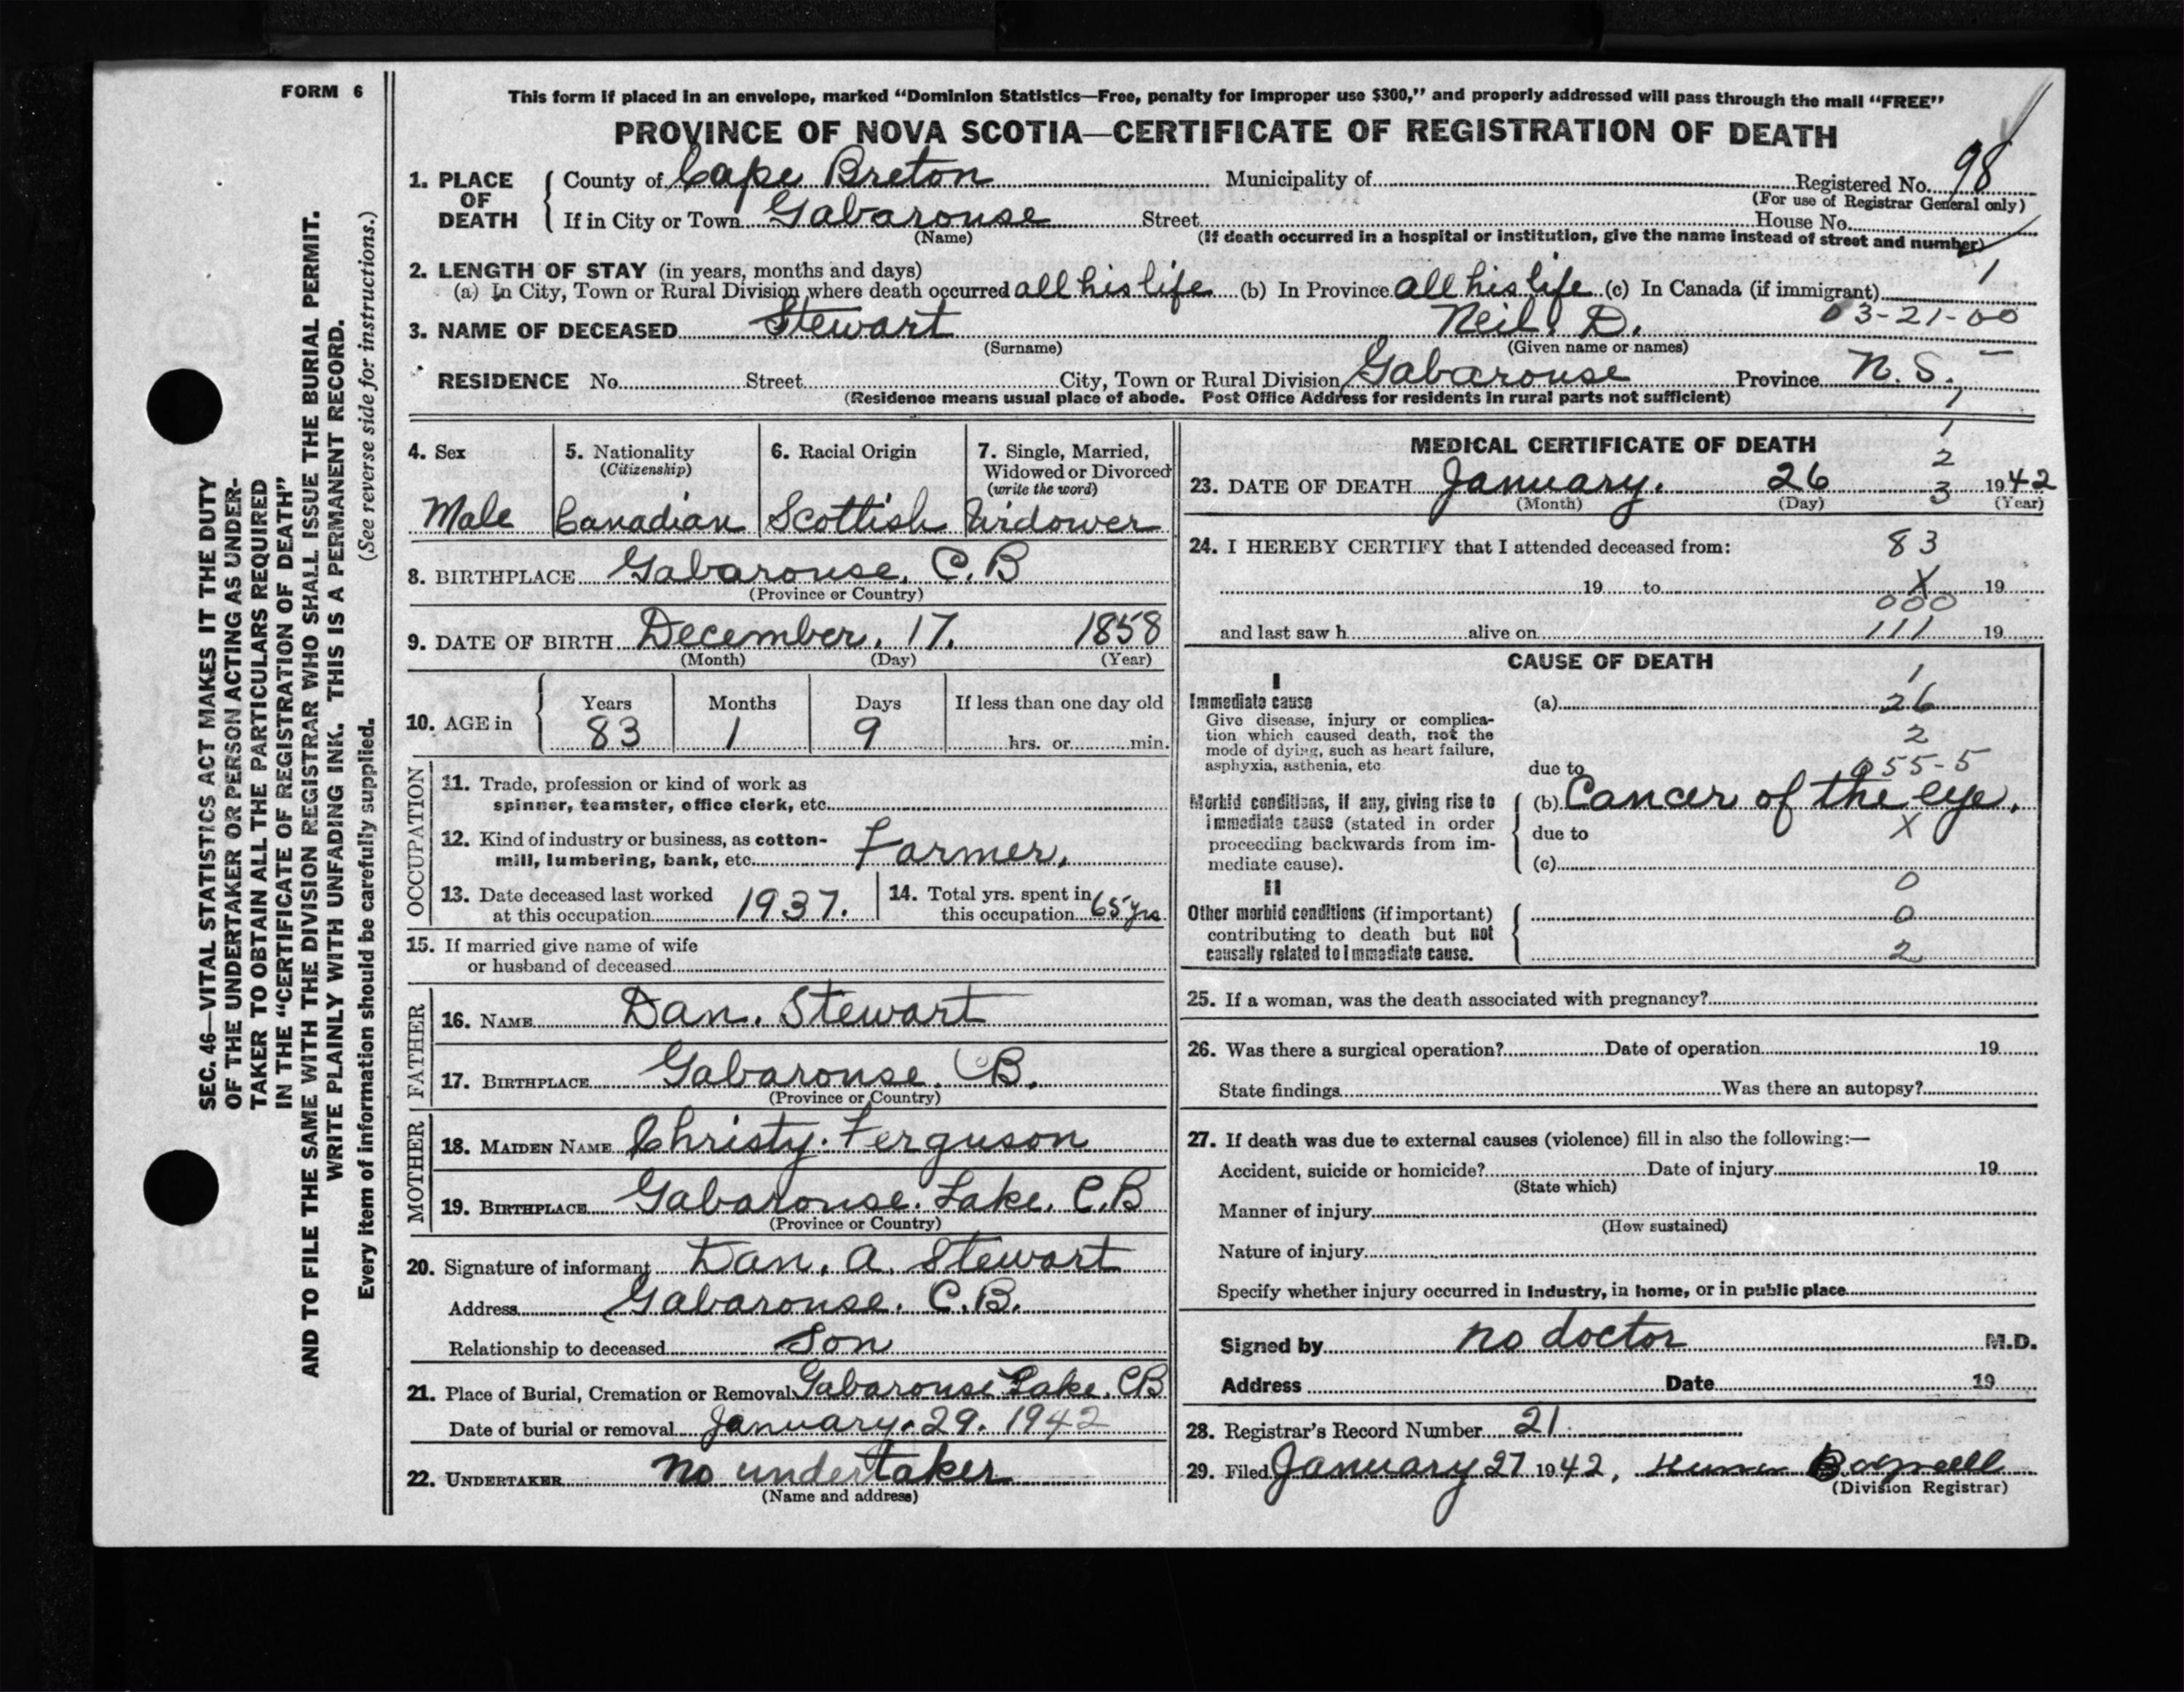 FORM 6
SEC. 46—VITAL STATISTICS ACT MAKES IT THE DUTY
OF THE UNDERTAKER OR PERSON ACTING AS UNDER-
TAKER TO OBTAIN ALL THE PARTICULARS REQUIRED
IN THE "CERTIFICATE OF REGISTRATION OF DEATH"
AND TO FILE THE SAME WITH THE DIVISION REGISTRAR WHO SHALL ISSUE THE BURIAL PERMIT.
WRITE PLAINLY WITH UNFADING INK. THIS IS A PERMANENT RECORD.
Every item of information should be carefully supplied. (See reverse side for instructions.)
This form if placed in an envelope, marked "Dominion Statistics—Free, penalty for improper use $300," and properly addressed will pass through the mail "FREE"
PROVINCE OF NOVA SCOTIA—CERTIFICATE OF REGISTRATION OF DEATH
1. PLACE OF DEATH County of Cape Breton Municipality of Registered No. 98
(For use of Registrar General only)
If in City or Town Gabarouse Street House No.
(Name) (If death occurred in a hospital or institution, give the name instead of street and number)
2. LENGTH OF STAY (in years, months and days) 1
(a) In City, Town or Rural Division where death occurred all his life (b) In Province all his life (c) In Canada (if immigrant)
3. NAME OF DECEASED Stewart Neil D. 03-21-00
(Surname) (Given name or names)
RESIDENCE No. Street City, Town or Rural Division Gabarouse Province N. S.
(Residence means usual place of abode. Post Office Address for residents in rural parts not sufficient)
4. Sex
Male
5. Nationality
(Citizenship)
Canadian
6. Racial Origin
Scottish
7. Single, Married,
Widowed or Divorced
(write the word)
Widower
8. BIRTHPLACE Gabarouse, C.B
(Province or Country)
9. DATE OF BIRTH December, 17, 1858
(Month) (Day) (Year)
10. AGE in Years Months Days If less than one day old
83 1 9 hrs. or min.
OCCUPATION
11. Trade, profession or kind of work as
spinner, teamster, office clerk, etc.
12. Kind of industry or business, as cotton-
mill, lumbering, bank, etc. Farmer,
13. Date deceased last worked
at this occupation 1937.
14. Total yrs. spent in
this occupation 65 yrs
15. If married give name of wife
or husband of deceased
FATHER
16. NAME Dan. Stewart
17. BIRTHPLACE Gabarouse. CB.
(Province or Country)
MOTHER
18. MAIDEN NAME Christy. Ferguson
19. BIRTHPLACE Gabarouse. Lake. C.B
(Province or Country)
20. Signature of informant Dan. A. Stewart
Address Gabarouse. C.B.
Relationship to deceased Son
21. Place of Burial, Cremation or Removal Gabarouse Lake. CB
Date of burial or removal January. 29. 1942
22. UNDERTAKER no undertaker
(Name and address)
MEDICAL CERTIFICATE OF DEATH
1
2
3
23. DATE OF DEATH January. 26 1942
(Month) (Day) (Year)
24. I HEREBY CERTIFY that I attended deceased from: 83
19 to X 19
000
and last saw h alive on 111 19
CAUSE OF DEATH
I
1
Immediate cause (a) 26
Give disease, injury or complica-
tion which caused death, not the
mode of dying, such as heart failure,
asphyxia, asthenia, etc.
2
due to 055-5
Morbid conditions, if any, giving rise to
immediate cause (stated in order
proceeding backwards from im-
mediate cause).
(b) Cancer of the eye.
due to X
(c)
II
0
Other morbid conditions (if important)
contributing to death but not
causally related to immediate cause.
0
2
25. If a woman, was the death associated with pregnancy?
26. Was there a surgical operation? Date of operation 19
State findings Was there an autopsy?
27. If death was due to external causes (violence) fill in also the following:—
Accident, suicide or homicide? Date of injury 19
(State which)
Manner of injury
(How sustained)
Nature of injury
Specify whether injury occurred in industry, in home, or in public place
Signed by no doctor M.D.
Address Date 19
28. Registrar's Record Number 21.
29. Filed January 27 1942,
(Division Registrar)